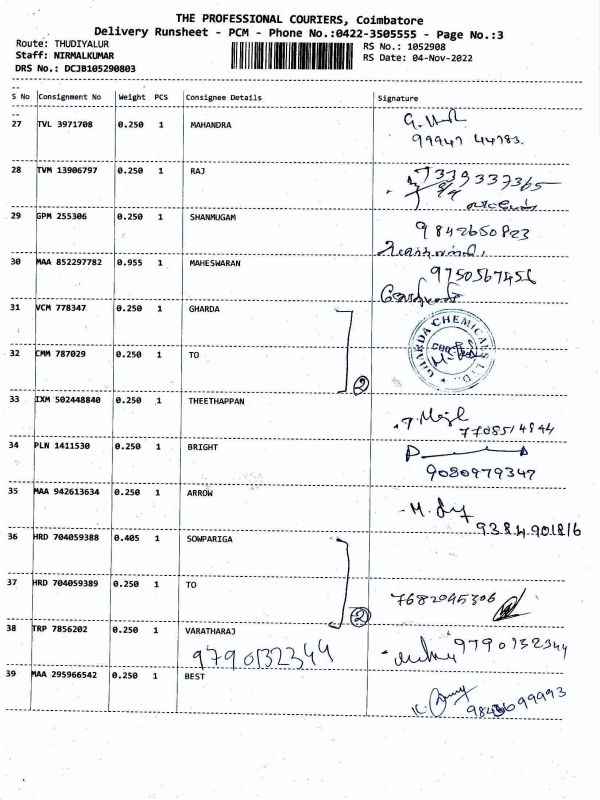 THE PROFESSIONAL COURIERS, Coimbatore
Delivery Runsheet - PCM - Phone No.:0422-3505555 - Page No.:3
Route: THUDIYALUR
RS No.: 1052908
Staff: NIRMALKUMAR
RS Date: 04-Nov-2022
DRS No.: DCJB105290803
S No Consignment No Weight PCS Consignee Details Signature
27 TVL 3971708 0.250 1 MAHANDRA
99947 44783.
28 TVM 13906797 0.250 1 RAJ
7339337365
29 GPM 255306 0.250 1 SHANMUGAM
9842650823
30 MAA 852297782 0.955 1 MAHESWARAN
9750567456
31 VCM 778347 0.250 1 GHARDA
GHARDA CHEMICALS LTD.
32 CMM 787029 0.250 1 TO
2
33 IXM 502448840 0.250 1 THEETHAPPAN
7708514844
34 PLN 1411530 0.250 1 BRIGHT
9080979347
35 MAA 942613634 0.250 1 ARROW
9384901816
36 HRD 704059388 0.405 1 SOWPARIGA
37 HRD 704059389 0.250 1 TO
7682045306
2
38 TRP 7856202 0.250 1 VARATHARAJ
9790132344
9790132344
39 MAA 295966542 0.250 1 BEST